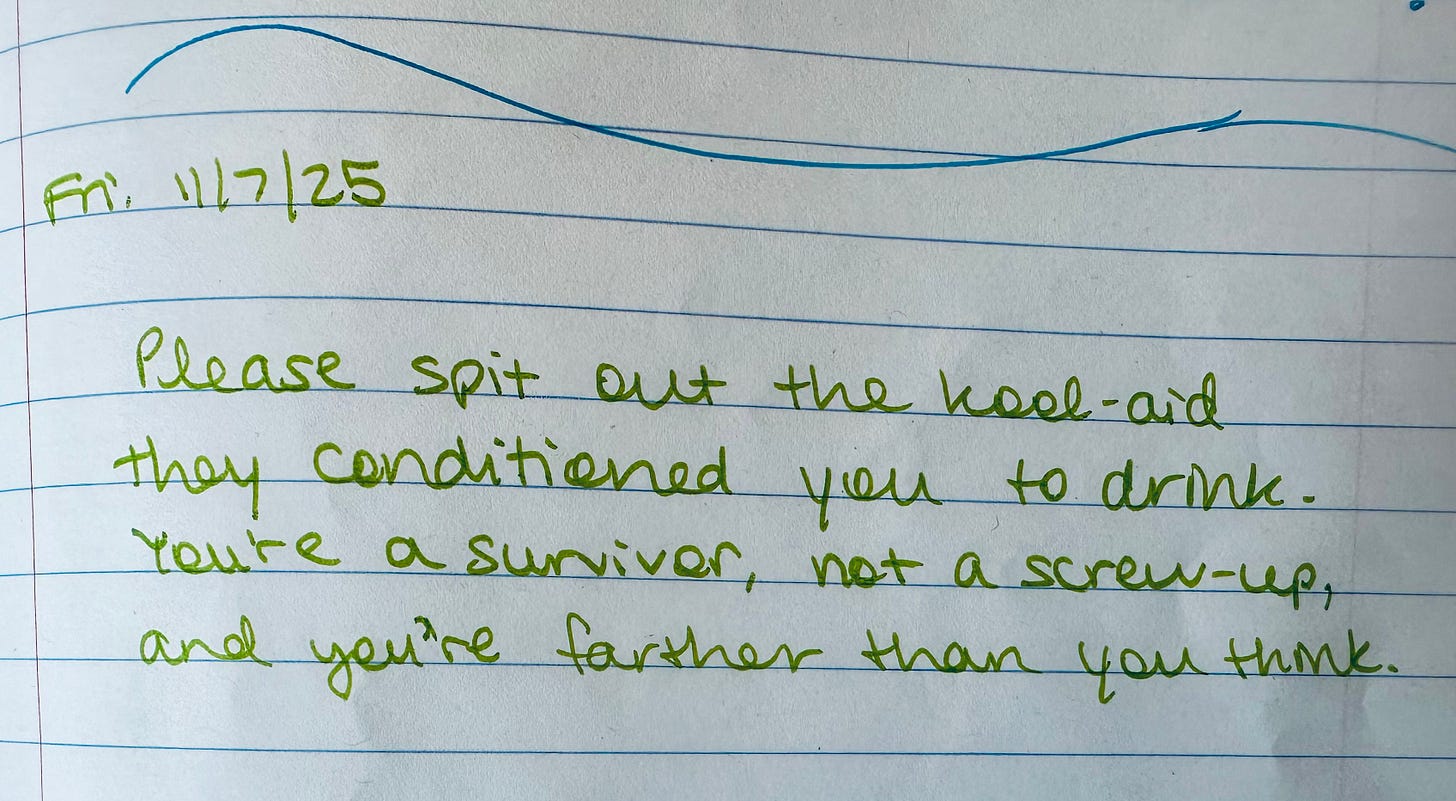 Fri. 11/7/25
Please spit out the kool-aid
they conditioned you to drink.
You're a survivor, not a screw-up,
and you're farther than you think.